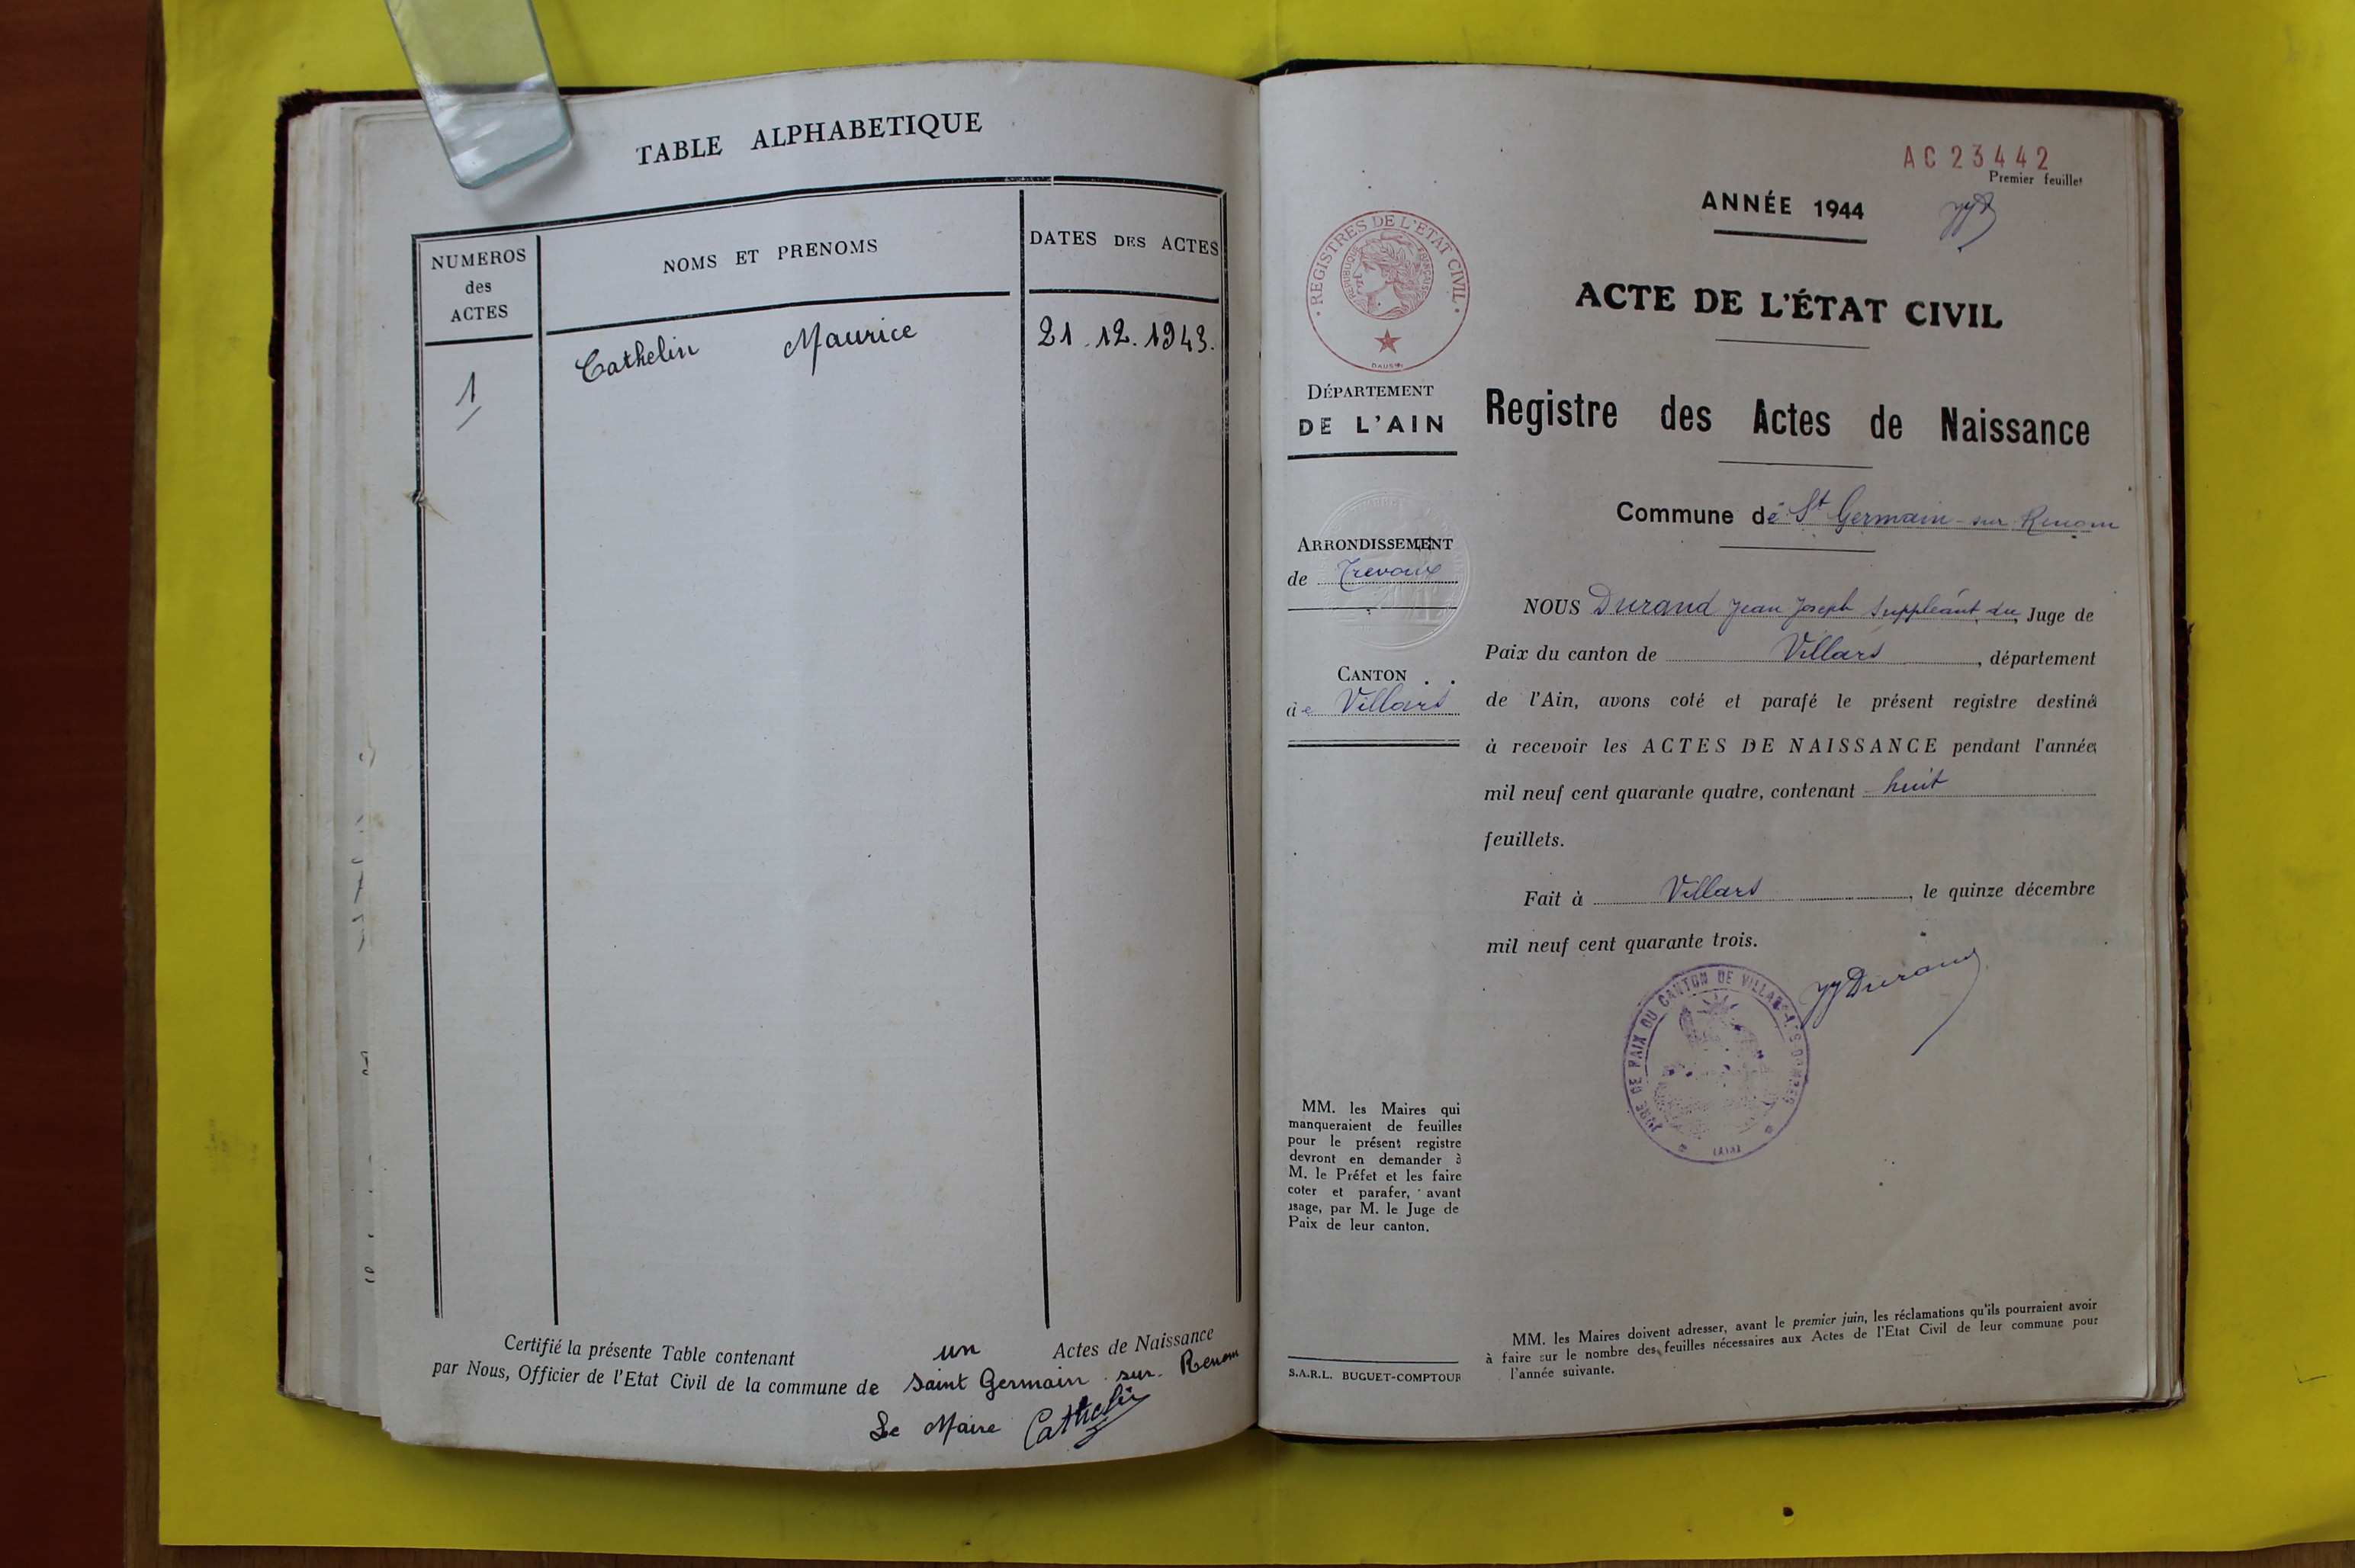 TABLE ALPHABETIQUE
NUMEROS des ACTES
NOMS ET PRENOMS
DATES DES ACTES
1
Cathelin Maurice
21.12.1943.
Certifié la présente Table contenant un Actes de Naissance
par Nous, Officier de l'Etat Civil de la commune de Saint Germain sur Renom
Le Maire Cathelin
AC23442
Premier feuillet
ANNÉE 1944
REGISTRES DE L'ETAT CIVIL
REPUBLIQUE FRANÇAISE
ACTE DE L'ÉTAT CIVIL
DÉPARTEMENT
DE L'AIN
Registre des Actes de Naissance
Commune de St Germain-sur-Renom
ARRONDISSEMENT
de Trevoux
NOUS Durand Jean Joseph Suppléant du Juge de
Paix du canton de Villars, département
CANTON
de Villars
de l'Ain, avons coté et parafé le présent registre destiné
à recevoir les ACTES DE NAISSANCE pendant l'année
mil neuf cent quarante quatre, contenant huit
feuillets.
Fait à Villars, le quinze décembre
mil neuf cent quarante trois.
JJ Durand
JUGE DE PAIX DU CANTON DE VILLARS-LES-DOMBES
MM. les Maires qui
manqueraient de feuilles
pour le présent registre
devront en demander à
M. le Préfet et les faire
coter et parafer, avant
usage, par M. le Juge de
Paix de leur canton.
MM. les Maires doivent adresser, avant le premier juin, les réclamations qu'ils pourraient avoir
à faire sur le nombre des feuilles nécessaires aux Actes de l'Etat Civil de leur commune pour
l'année suivante.
S.A.R.L. BUGUET-COMPTOUR